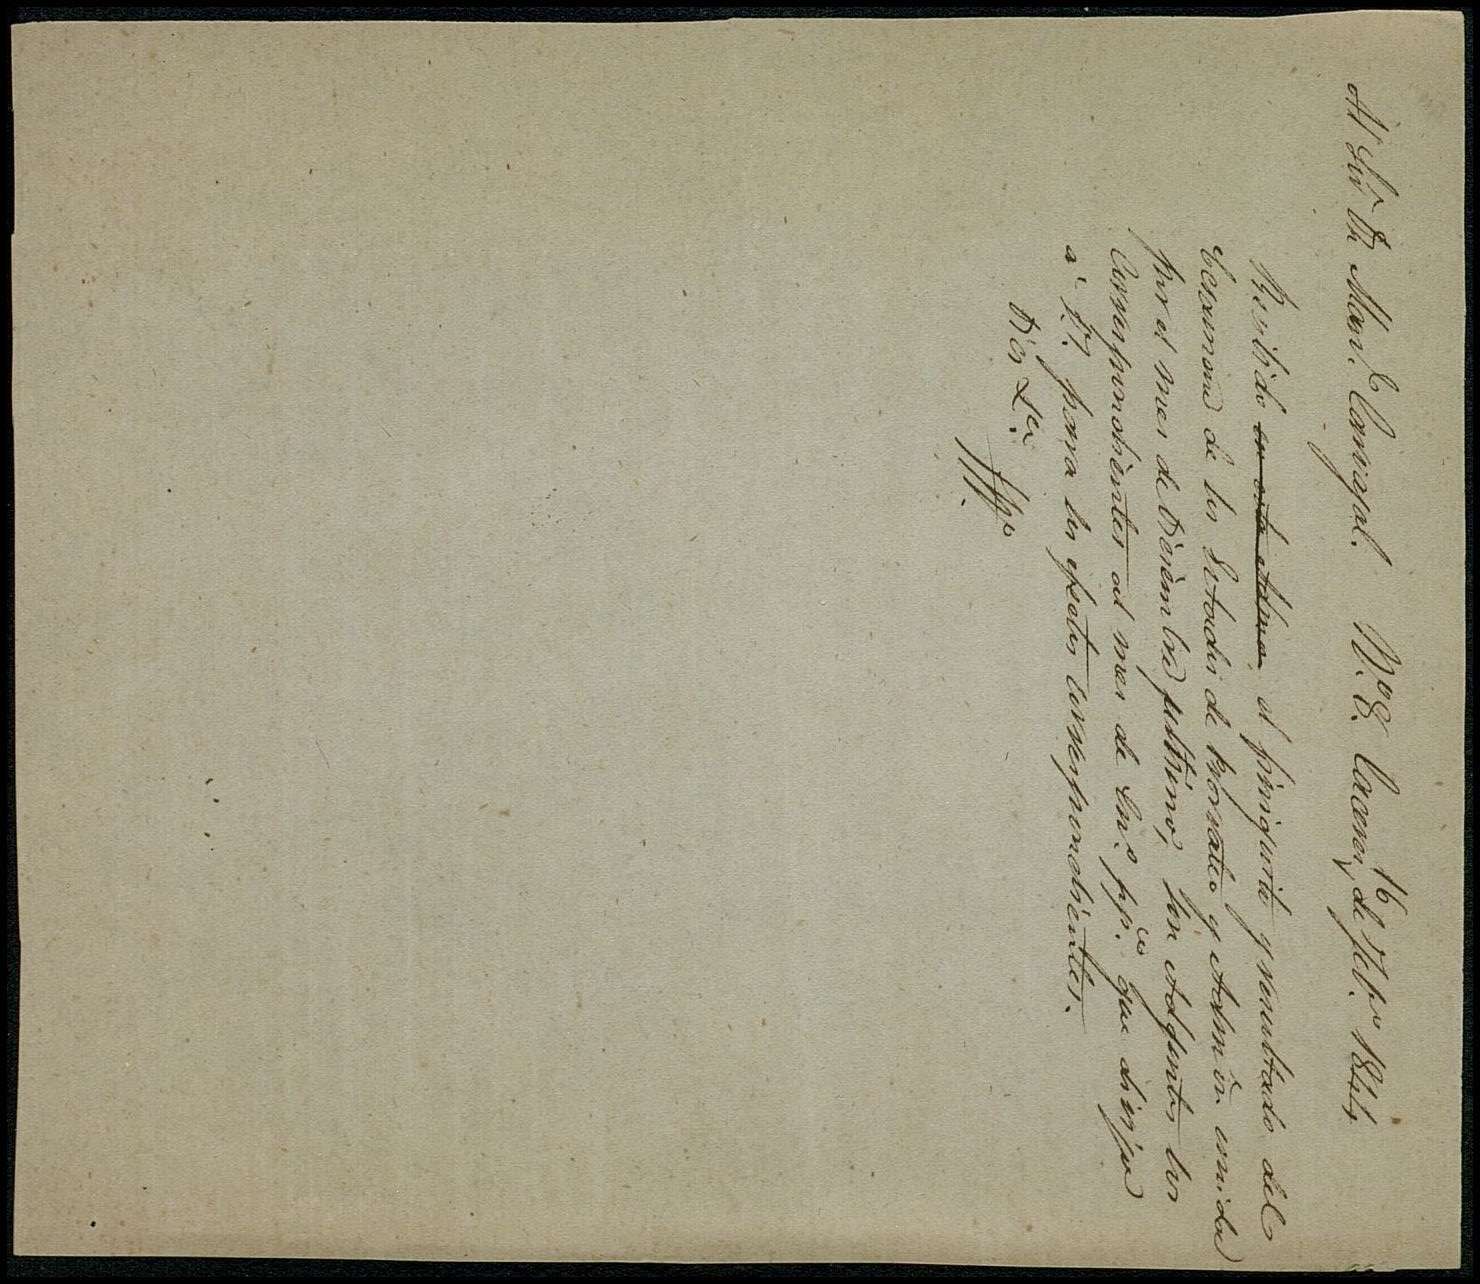 Al Sôr Dn Man.l Carvajal. N.º 8. Caceres, 16 de Feb.º 1844.
Recibido en esta Admon. el finiquito y resultado del
Ecsamen de los Estados de Prorrateo y Admôn. unidos
por el mes de Diciembre ulttimo, son Adjuntos los
Correspondientes al mes de En.º pp.º que dirijo
à V. para los efectos correspondientes.
Dios &.ª